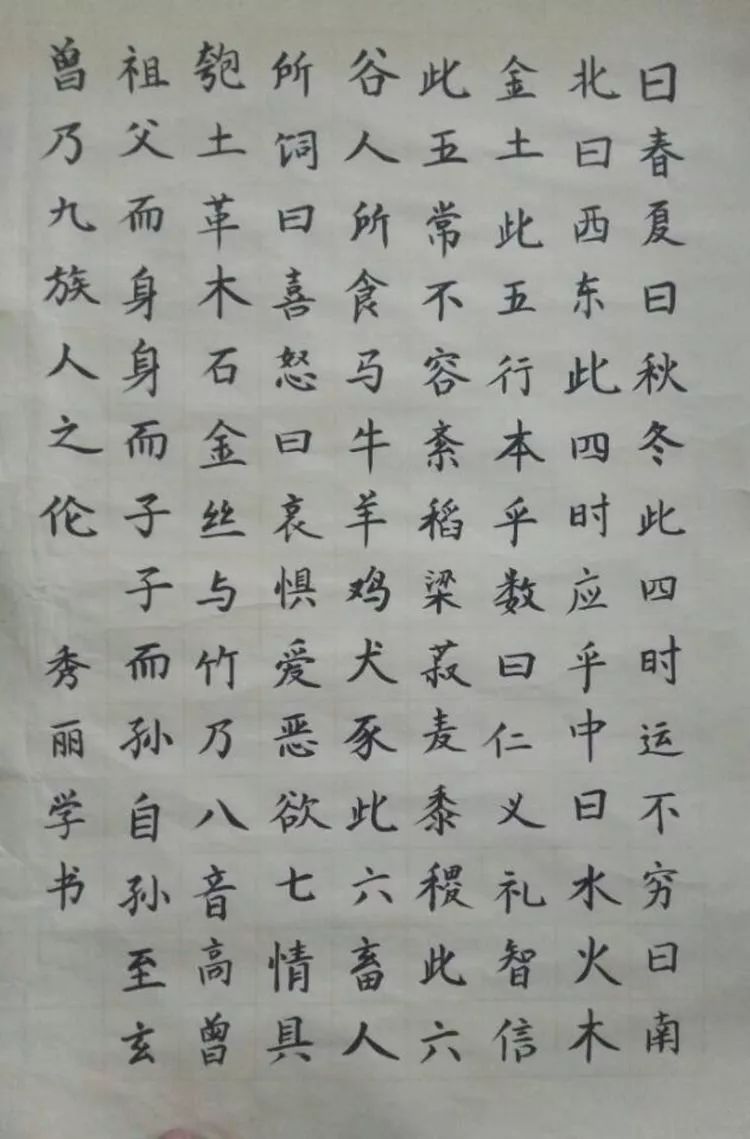 曰春夏曰秋冬此四时运不穷曰南
北曰西东此四时应乎中曰水火木
金土此五行本乎数曰仁义礼智信
此五常不容紊稻梁菽麦黍稷此六
谷人所食马牛羊鸡犬豕此六畜人
所饲曰喜怒曰哀惧爱恶欲七情具
匏土革木石金丝与竹乃八音高曾
祖父而身身而子子而孙自孙至玄
曾乃九族人之伦 秀丽学书